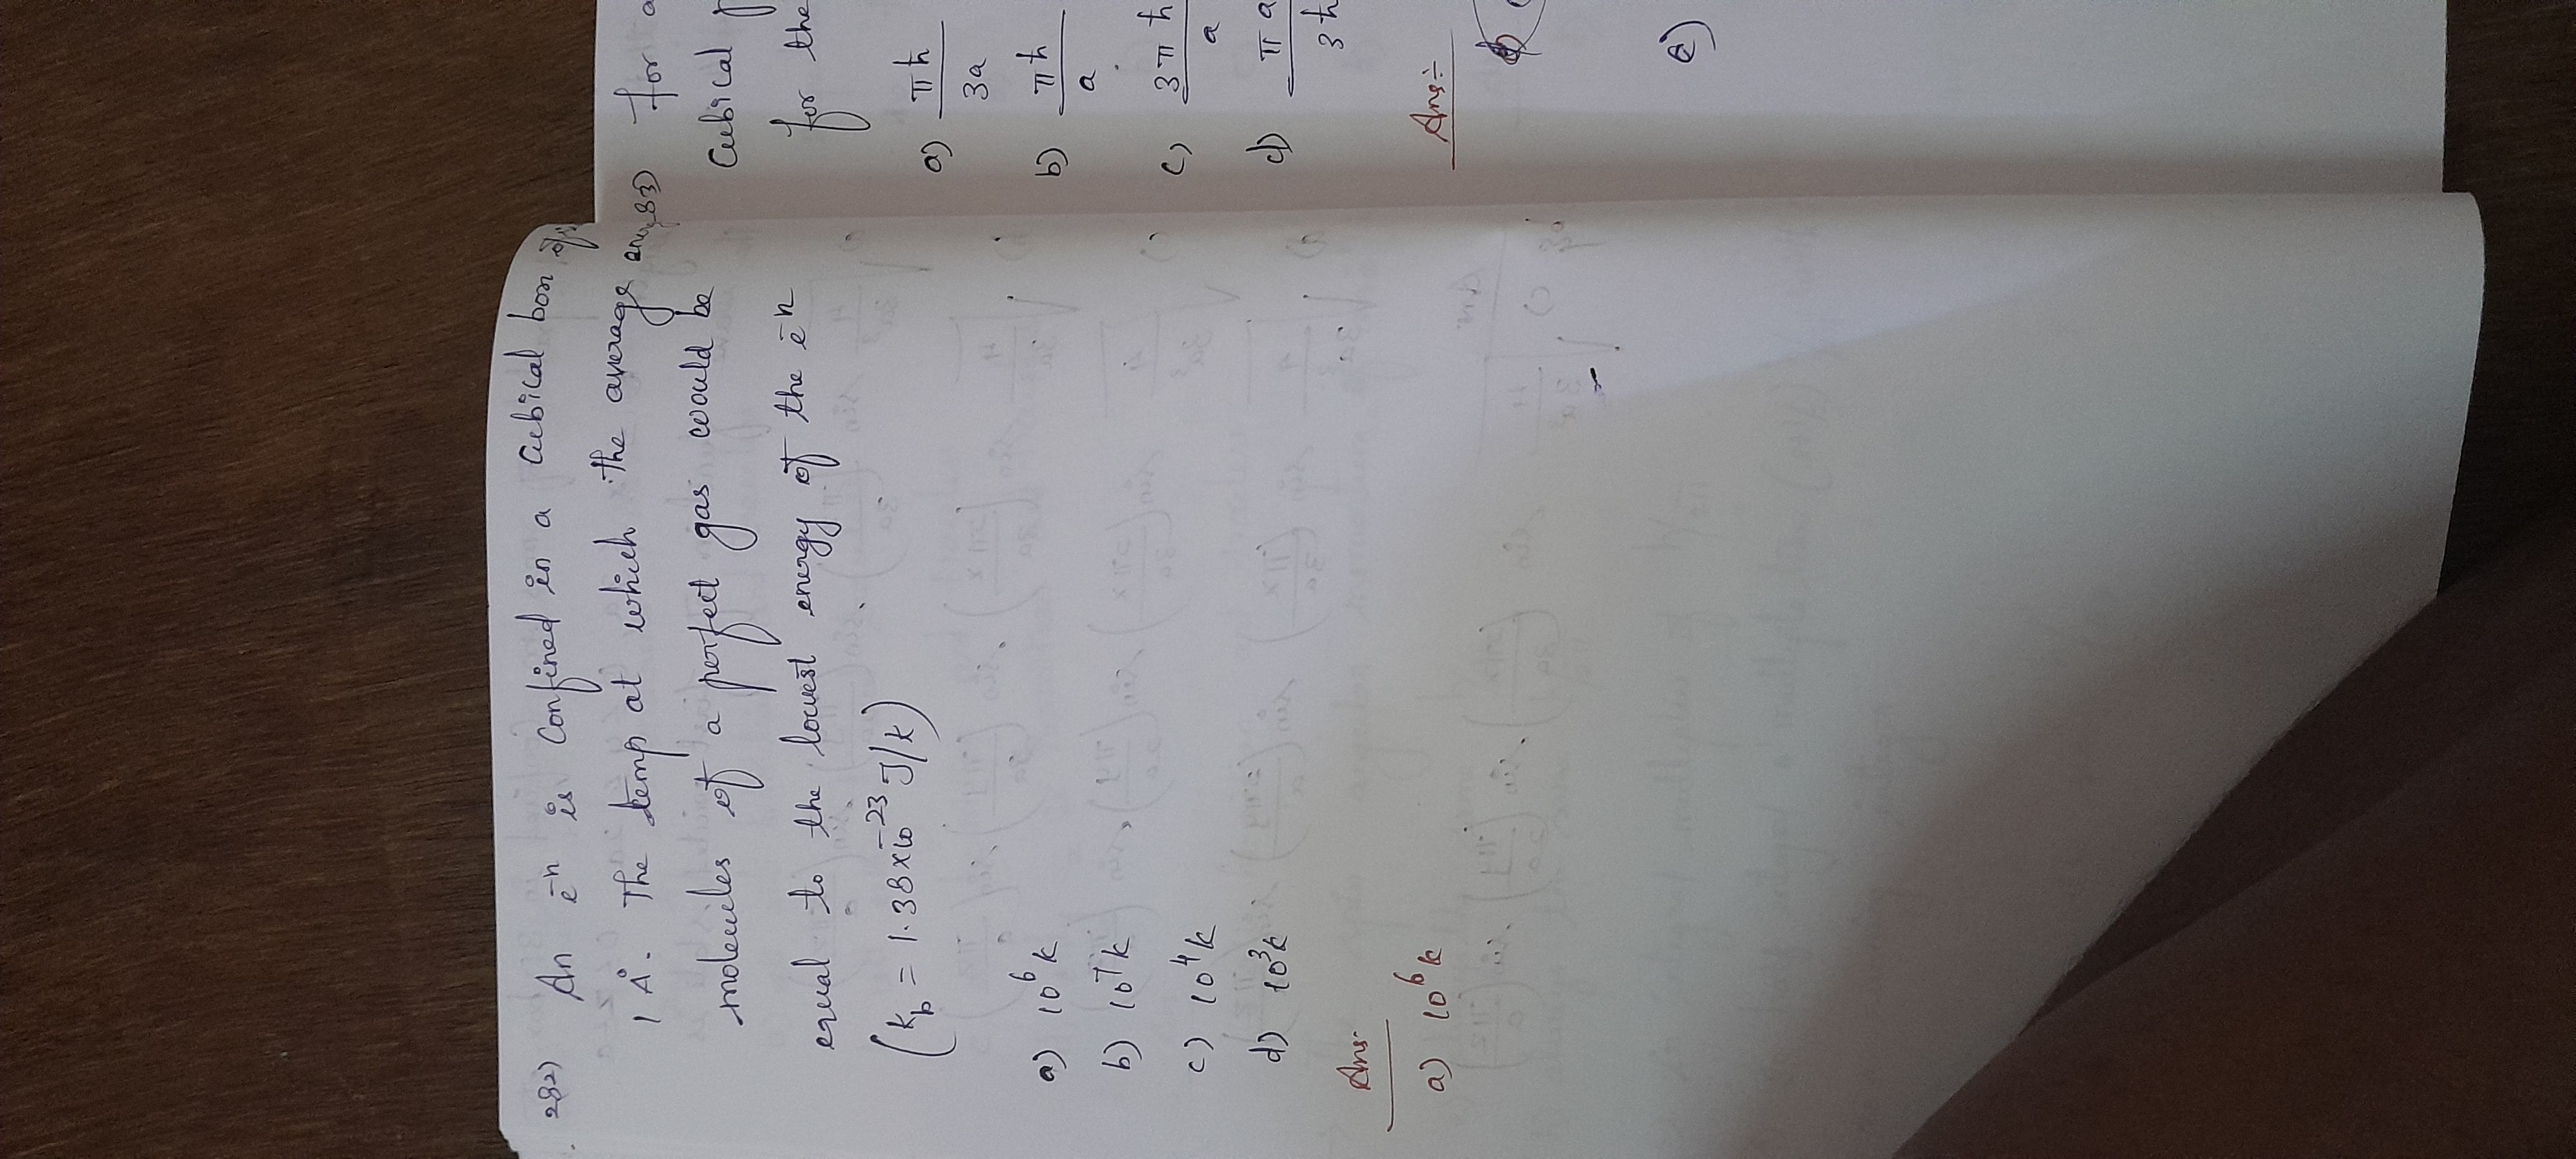 282) An e⁻n is confined in a cubical box of
1 Å. The temp at which the average energy
molecules of a perfect gas would be
equal to the lowest energy of the e⁻n
(k_b = 1.38×10⁻²³ J/k)
a) 10⁶ k
b) 10⁷ k
c) 10⁴ k
d) 10³ k
Ans:
a) 10⁶ k
83) for a
cubical
for the
a) πħ
3a
b) πħ
a
c) 3πħ
a
d) πa
3ħ
Ans:-